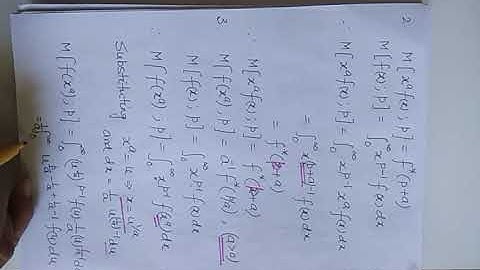 2 M[x^a f(x); p] = f*(p+a)
M[f(x); p] = ∫_0^∞ x^{p-1} f(x) dx
∴ M[x^a f(x); p] = ∫_0^∞ x^{p-1} x^a f(x) dx
= ∫_0^∞ x^{(p+a)-1} f(x) dx
= f*(p+a)
∴ M[x^a f(x); p] = f*(p+a)
3 M[f(x^a); p] = a^{-1} f*(p/a), (a>0)
M[f(x); p] = ∫_0^∞ x^{p-1} f(x) dx
∴ M[f(x^a); p] = ∫_0^∞ x^{p-1} f(x^a) dx
Substituting x^a = u ⇒ x = u^{1/a}
and dx = 1/a u^{(1/a)-1} du
M[f(x^a); p] = ∫_0^∞ (u^{1/a})^{p-1} f(u) 1/a (u)^{1/a-1} du
= 1/a ∫_0^∞ u^{p/a-1/a+1/a-1} f(u) du